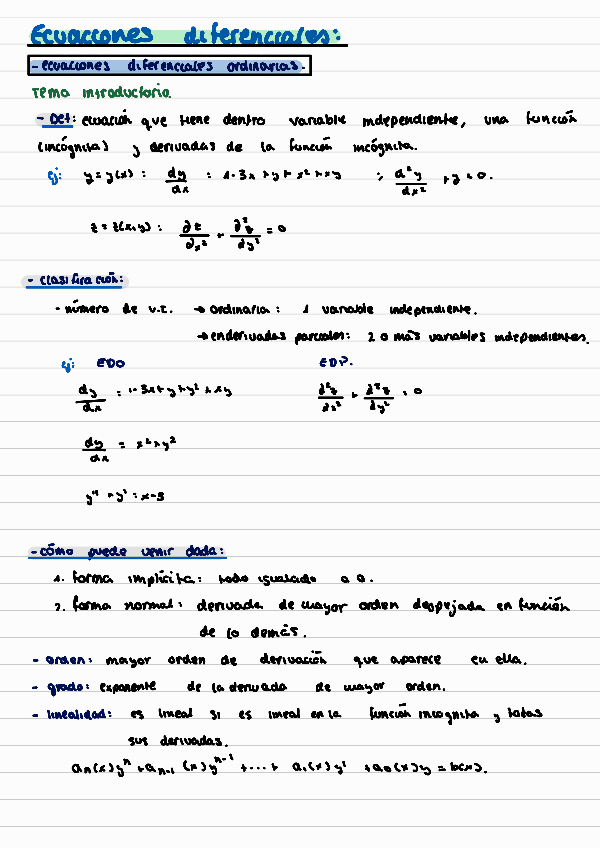 Ecuaciones diferenciales:
- ecuaciones diferenciales ordinarias.
Tema introductorio.
- Def: ecuación que tiene dentro variable independiente, una función
(incógnita) y derivadas de la función incógnita.
ej: y = y(x) : dy/dx = 1-3x+y+x²+xy ; d²y/dx² + y = 0.
z = z(x,y) : ∂²z/∂x² + ∂²z/∂y² = 0
- clasificación:
- número de v.I. → ordinaria: 1 variable independiente.
→ en derivadas parciales: 2 o más variables independientes.
ej: EDO EDP.
dy/dx = 1-3x+y+y²+xy ∂²z/∂x² + ∂²z/∂y² = 0
dy/dx = x²+y²
y'' + y' = x-5
- cómo puede venir dada:
1. forma implícita: todo igualado a 0.
2. forma normal: derivada de mayor orden despejada en función
de lo demás.
- orden: mayor orden de derivación que aparece en ella.
- grado: exponente de la derivada de mayor orden.
- linealidad: es lineal si es lineal en la función incognita y todas
sus derivadas.
aₙ(x)yⁿ + aₙ₋₁(x)yⁿ⁻¹ + ... + a₁(x)y' + a₀(x)y = b(x).